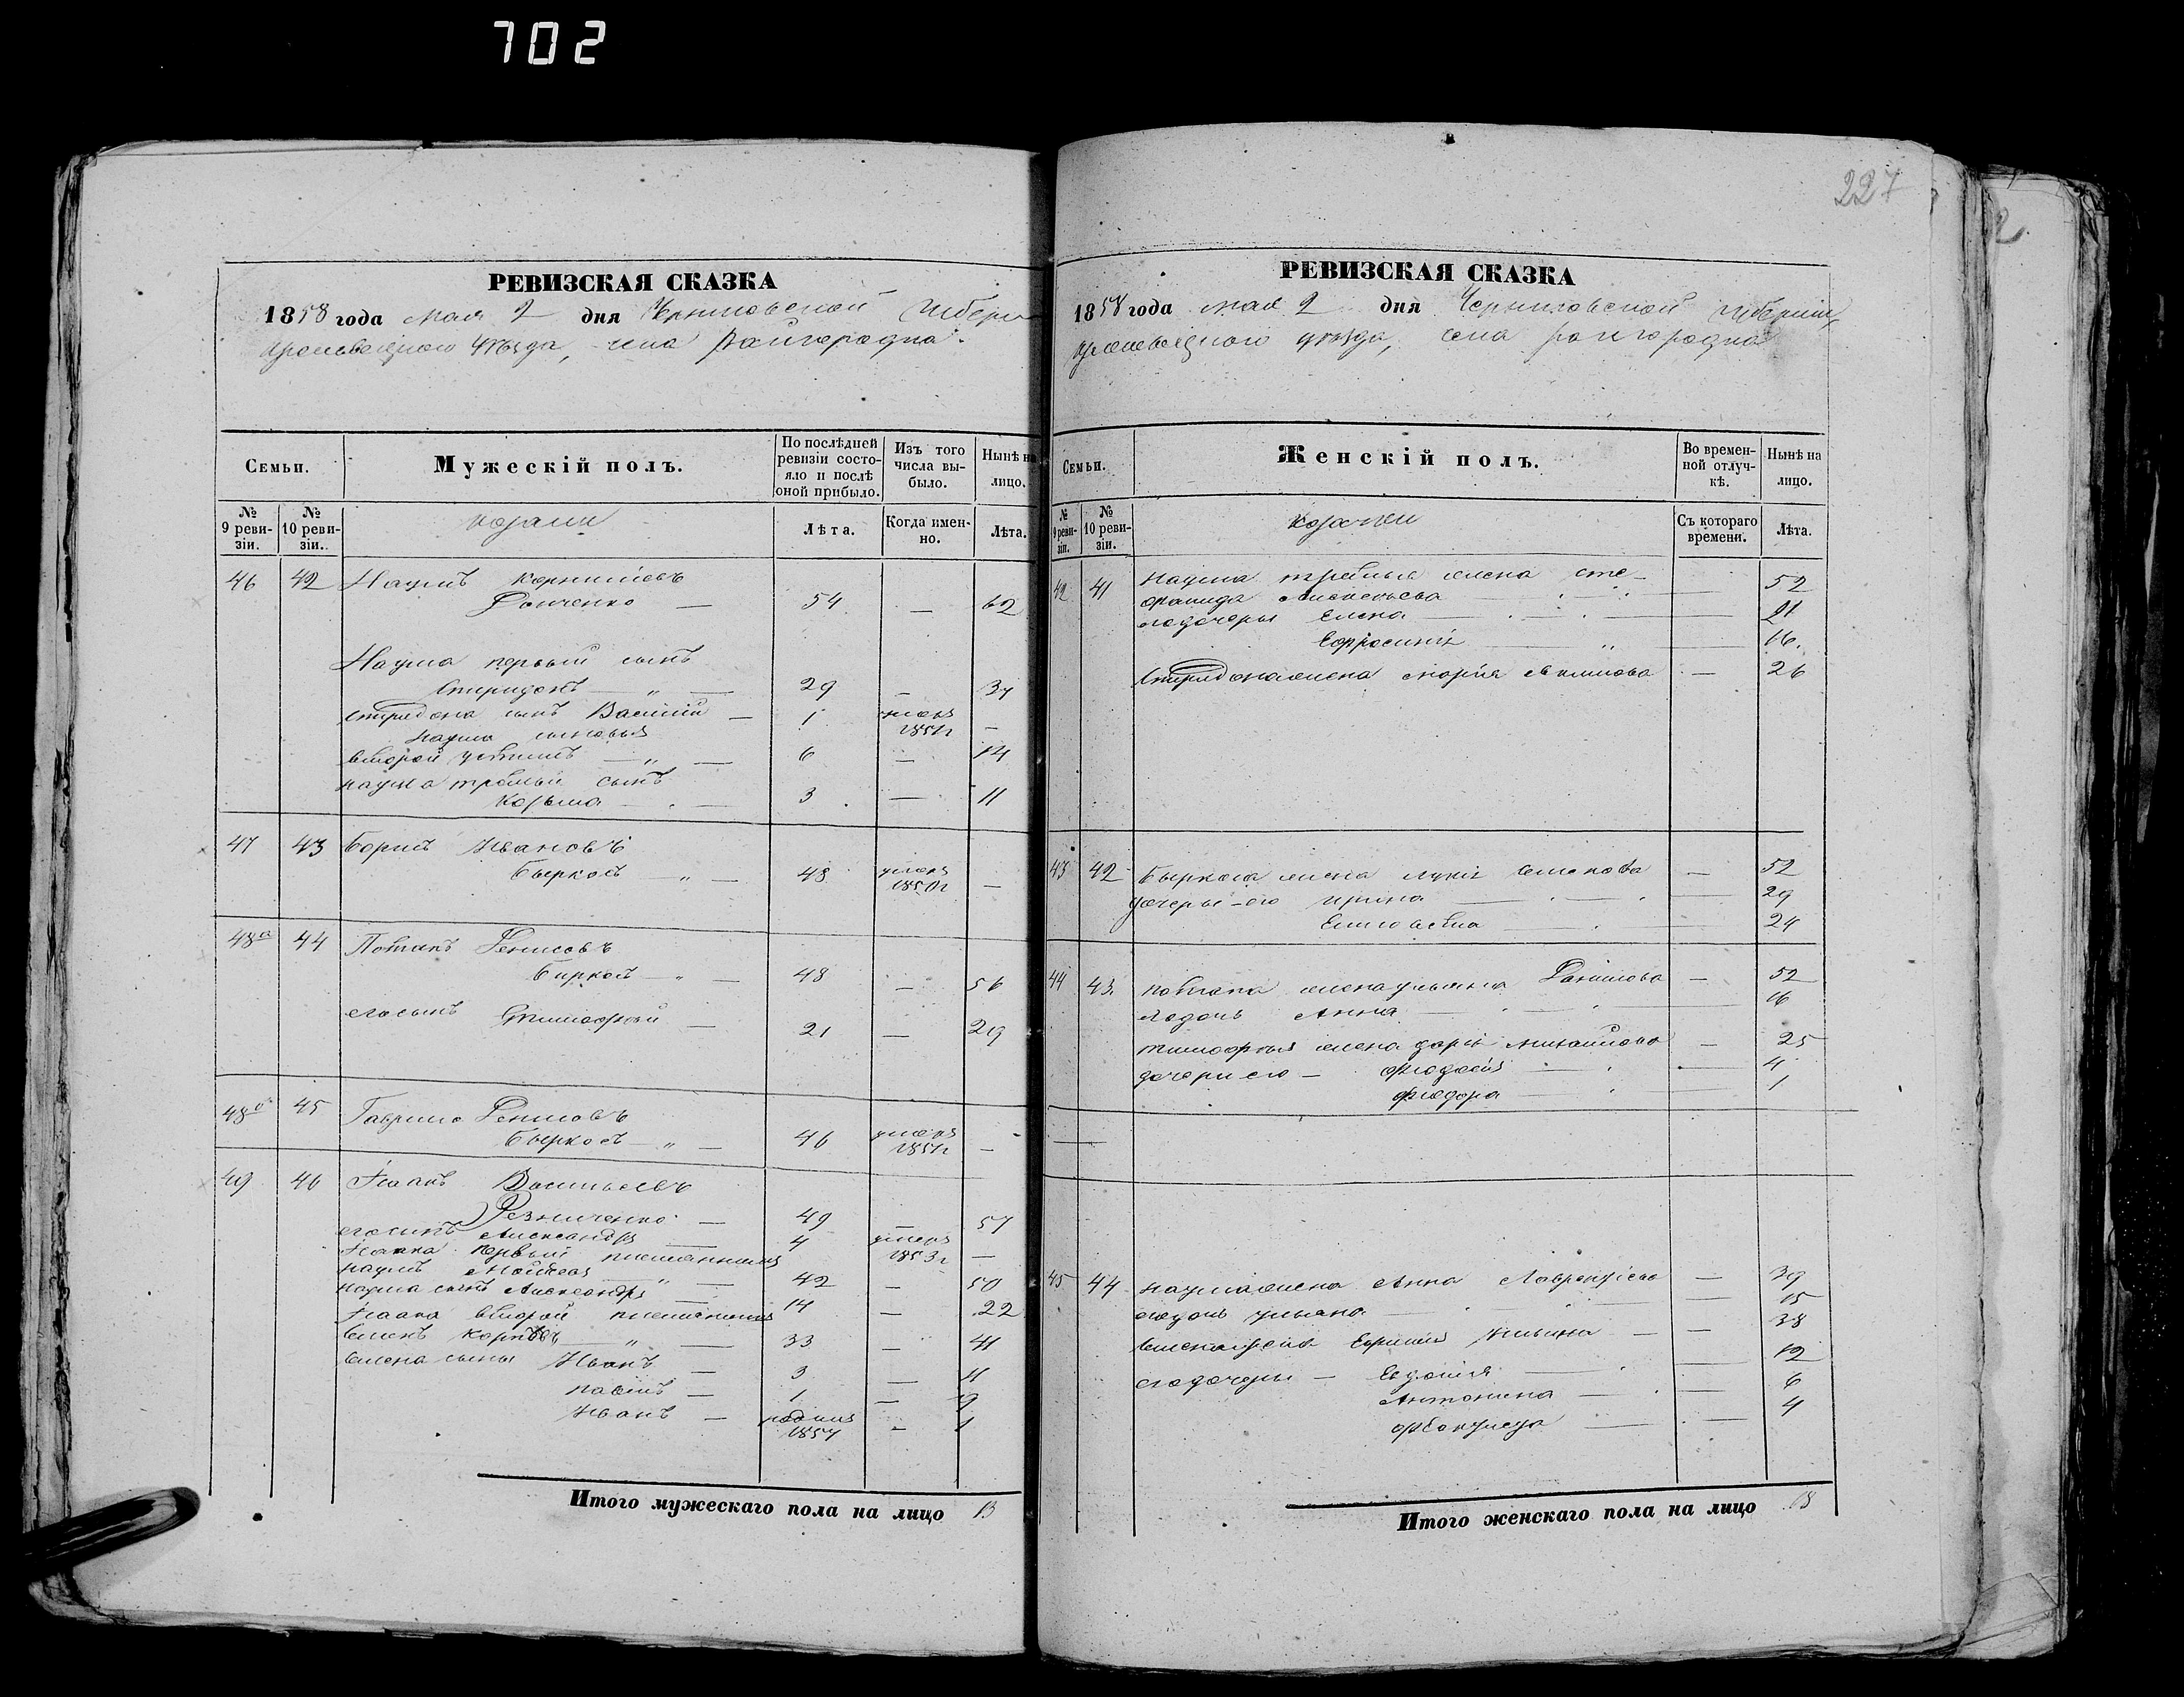 702
227
2
РЕВИЗСКАЯ СКАЗКА
1858 года мая 2 дня Черниговской Губерн
уѣзда, села Райгородка.
Семьи.
Мужескій полъ.
По послѣдней ревизіи состояло и послѣ оной прибыло.
Изъ того числа выбыло.
Нынѣ на лицо.
№ 9 ревизіи.
№ 10 ревизіи.
козаки
Лѣта.
Когда именно.
Лѣта.
46 42 Наумъ Корнѣевъ
Донченко — 54 — 62
Наума первый сынъ
Спиридонъ — „ — 29 — 37
Спиридона сынъ Василій — 1 умеръ 1851г —
Наума сыновья
второй Устинъ — „ — 6 — 14
Наума третьій сынъ
Козьма — 3 — 11
47 43 Борисъ Ивановъ
Быркосъ — „ — 48 умеръ —
48а 44 Потапъ Денисовъ
Биркосъ — „ — 48 — 56
его сынъ Тимофѣй — 21 — 29
48б 45 Гаврило Денисовъ
Быркосъ — „ — 46 умеръ —
49 46 Исакъ Васильевъ
Резниченко — 49 — 57
его сынъ Александръ — 4 умеръ 1853г —
Исака первый племянникъ
Наумъ — „ — 42 — 50
Наума сынъ Александръ — 14 — 22
Исака второй племянникъ
Семенъ — „ — 33 — 41
Семена сыны Иванъ — 3 — 11
— 1 — 9
Иванъ — 1857 — 1
Итого мужескаго пола на лицо 13
РЕВИЗСКАЯ СКАЗКА
1858 года мая 2 дня Черниговской губерніи,
уѣзда, села Райгородка
Семьи.
Женскій полъ.
Во временной отлучкѣ.
Нынѣ на лицо.
№ 9 ревизіи.
№ 10 ревизіи.
козачки
Съ котораго времени.
Лѣта.
42 41 Наума третья жена Сте-
фанида — 52
его дочеры Елена — 21
Ефросинія — 16.
Спиридона жена Марія — 26
43 42 Быркоса жена — 52
дочеры его Ирина — 29
Елисавета — 24
44 43. Потапа жена Ульяна Данилова — 52
его дочь Анна — 16
Тимофѣя жена Дарія Михайлова — 25
дочери его — Феодосія — 4
Феодора — 1
45 44 Наума жена Анна Лаврентіева — 39
его дочь Ульяна — 15
Семена жена Ильина — 38
его дочеры — Евдокія — 12
Антонина — 6
— 4
Итого женскаго пола на лицо 18